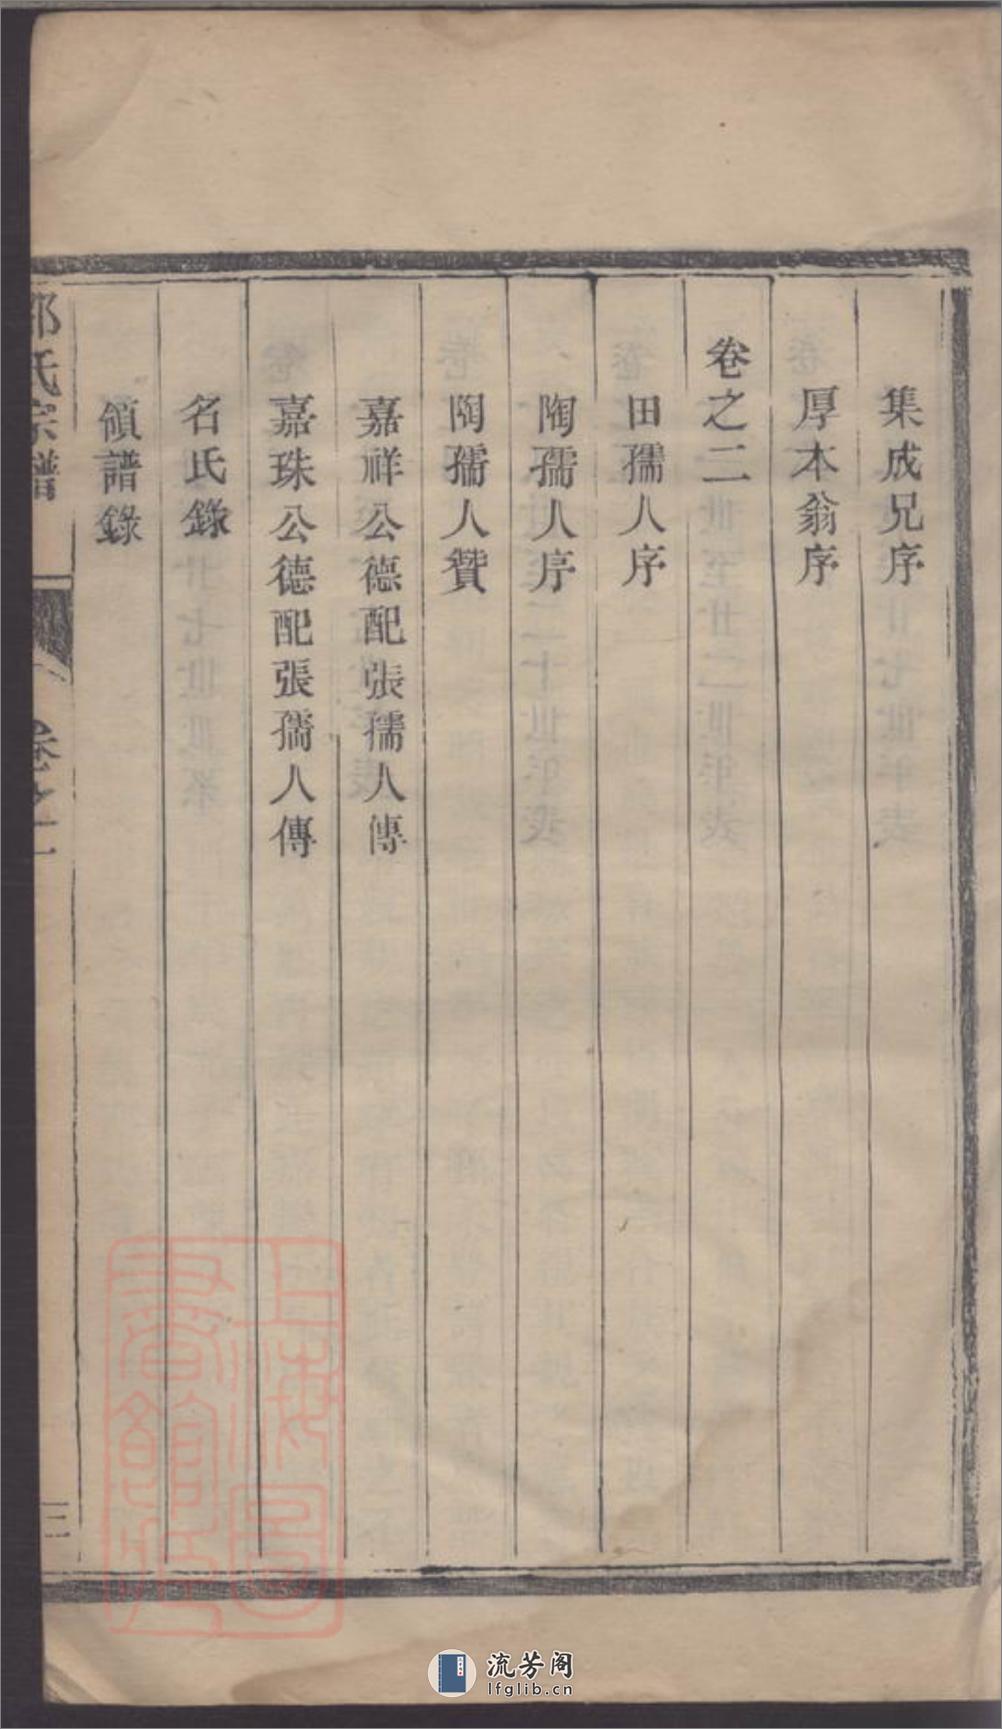 集成兄序
厚本翁序
卷之二
田孺人序
陶孺人序
陶孺人贊
嘉祥公德配張孺人傳
嘉珠公德配張孺人傳
名氏錄
領譜錄
氏宗譜
卷之
三
上海圖書館藏
流芳阁
lfglib.cn